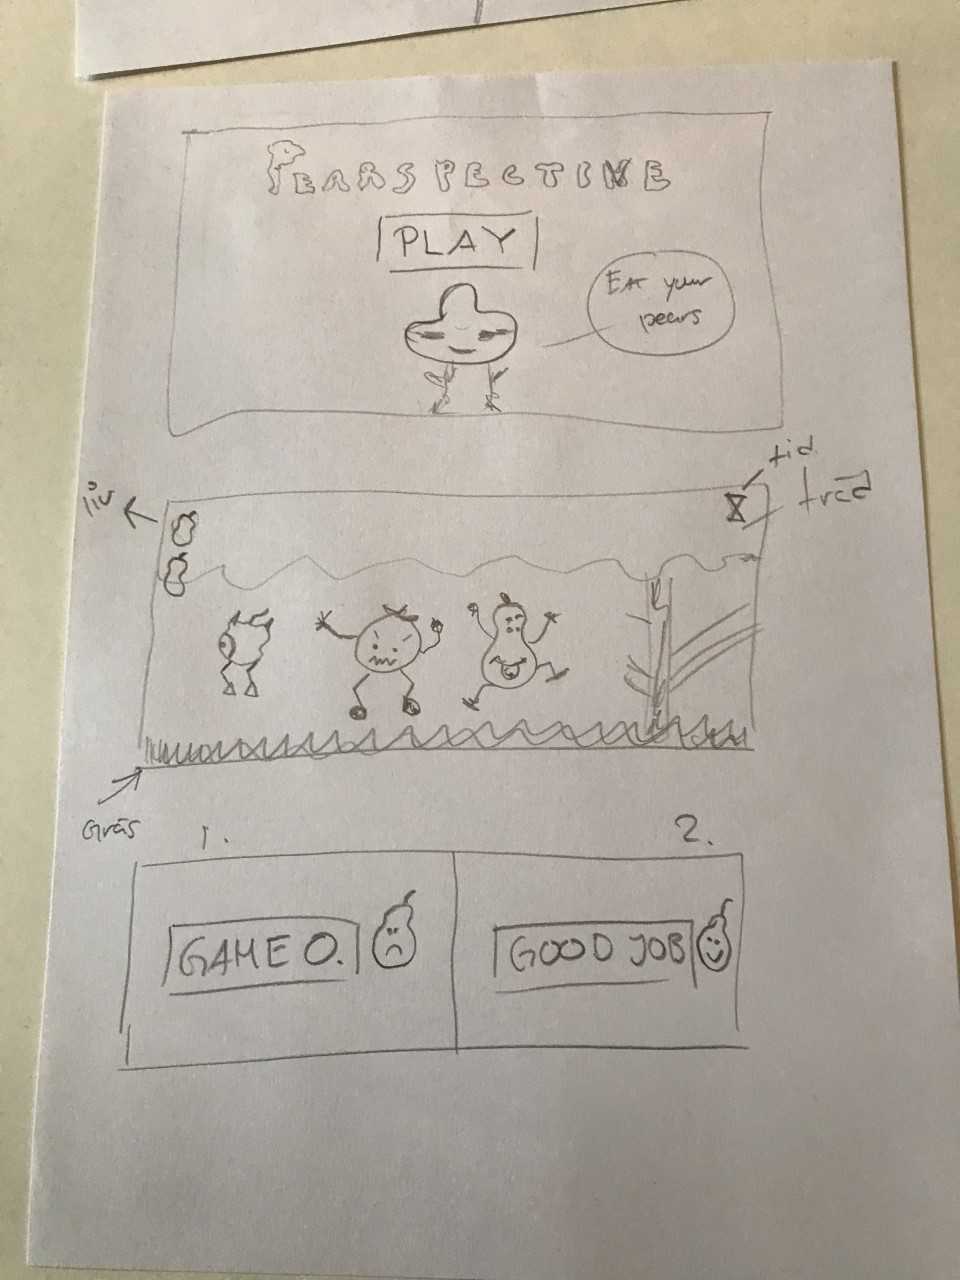 PEARSPECTIVE
PLAY
Eat your
pears
tid
liv
träd
Gräs
1.
2.
GAME O.
GOOD JOB